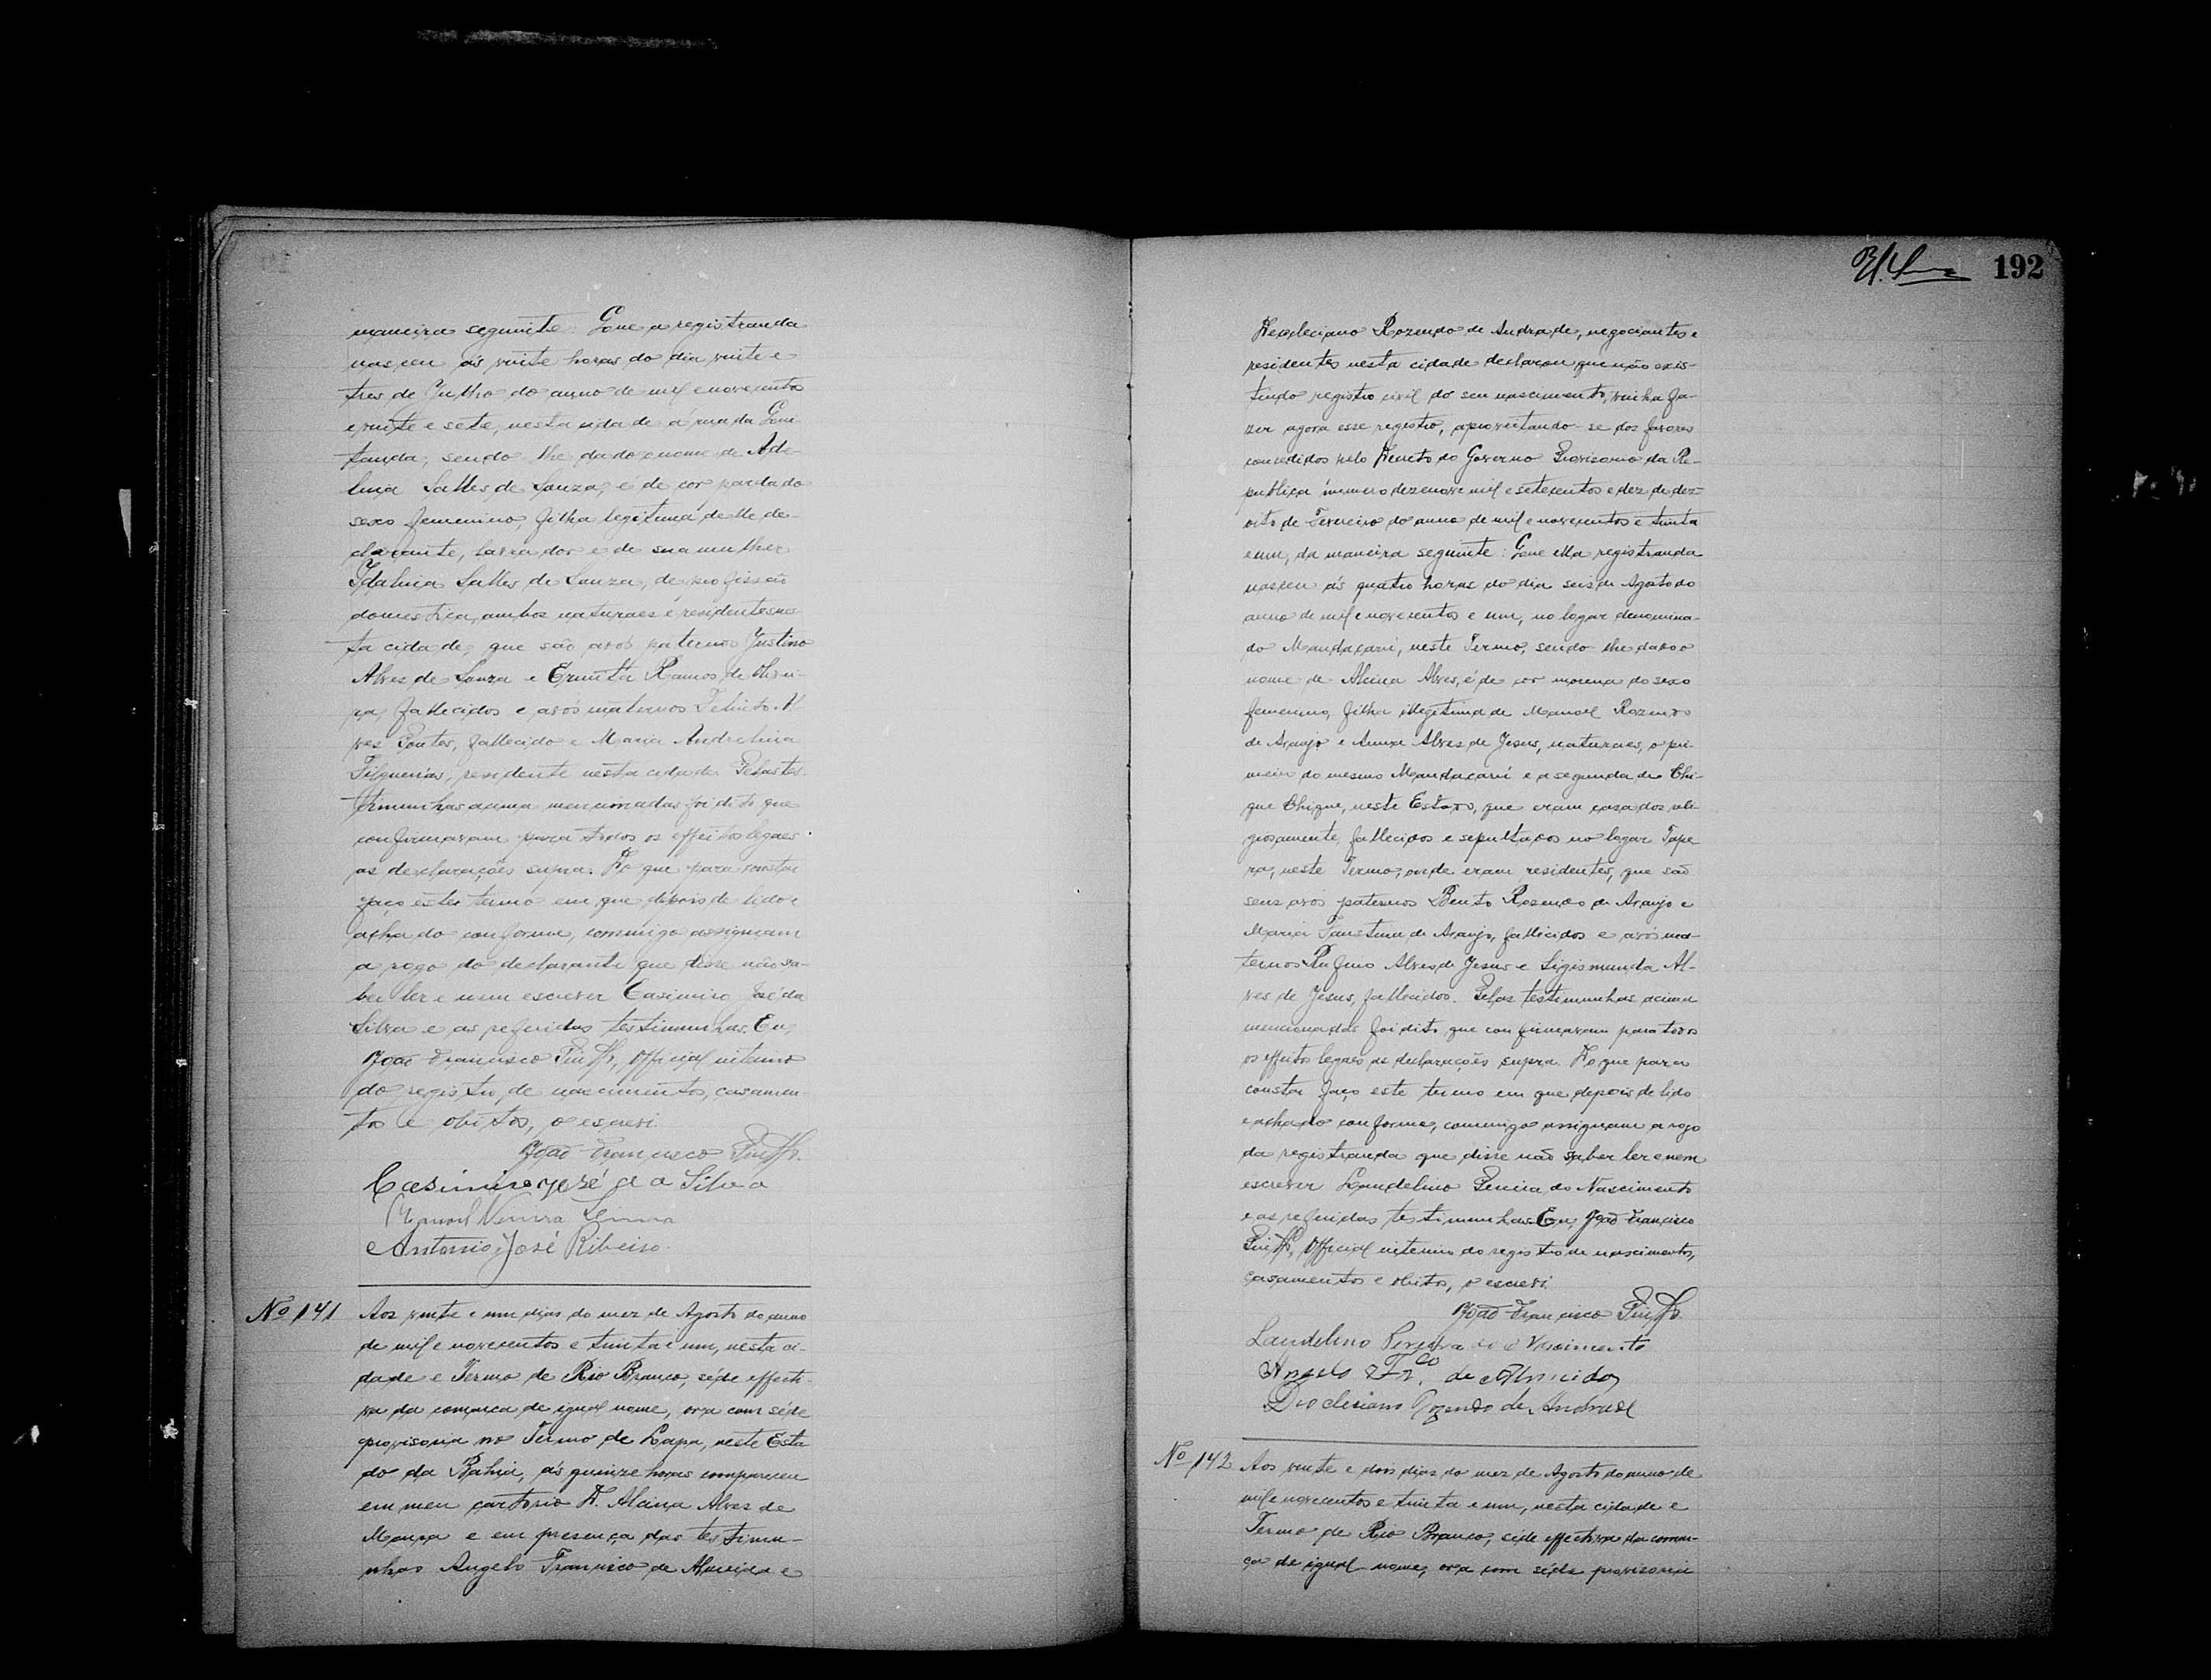 maneira seguinte: Que a registranda
nasceu ás vinte horas do dia vinte e
tres de Julho do anno de mil e novecentos
e vinte e sete, nesta cidade á rua da Qui-
tanda, sendo-lhe dado o nome de Ade-
lina Salles de Souza, é de cor parda do
sexo femenino, filha legitima delle de-
clarante, lavrador e de sua mulher
Idalina Salles de Souza, de profissão
domestica, ambos naturaes e residentes nes-
ta cidade, que são avós paternos Justino
Alves de Souza e Ermita Ramos de Olivei-
ra, fallecidos e avós maternos Al-
ves Pontes, fallecido e Maria Andrelina
Filgueiras, residente nesta cidade. Pelas tes-
timunhas acima mencionadas foi dito que
confirmavam para todos os effeitos legaes
as declarações supra. Do que para constar
faço este termo em que depois de lido e
achado conforme, commigo assignam
a rogo do declarante que disse não sa-
ber ler e nem escrever Casimiro José da
Silva e as referidas testimunhas. Eu,
João Francisco, Official interino
do registro de nascimentos, casamen-
tos e obitos, o escrevi.
João Francisco
Casimiro José da Silva
Manoel Vieira Lima
Antonio José Ribeiro.
Nº 141 Aos vinte e um dias do mez de Agosto do anno
de mil e novecentos e trinta e um, nesta ci-
dade e Termo de Rio Branco, séde effecti-
va da comarca de igual nome, ora com séde
provisoria no Termo de Lapa, neste Esta-
do da Bahia, ás quinze horas compareceu
em meu cartorio D. Alcina Alves de
Moura e em presença das testimu-
nhas Angelo Francisco de Almeida e
192
Deocleciano Rozendo de Andrade, negociantes e
residentes nesta cidade declarou que não exis-
tindo registro civil do seu nascimento, vinha fa-
zer agora esse registro, aproveitando-se dos favores
concedidos pelo Decreto do Governo Provisorio da Re-
publica numero dezenove mil e setecentos e dez de dez-
oito de Fevereiro do anno de mil e novecentos e trinta
e um, da maneira seguinte: Que ella registranda
nasceu ás quatro horas do dia seis de Agosto do
anno de mil e novecentos e um, no logar denomina-
do Mandacarú, neste Termo, sendo-lhe dado o
nome de Alcina Alves, é de cor morena do sexo
femenino, filha illegitima de Manoel Rozendo
de Araujo e Anna Alves de Jesus, naturaes, o pri-
meiro do mesmo Mandacarú e a segunda de Chi-
que Chique, neste Estado, que eram casados reli-
giosamente, fallecidos e sepultados no logar Tape-
ra, neste Termo, onde eram residentes, que são
seus avós paternos Bento Rozendo de Araujo e
Maria Faustina de Araujo, fallecidos e avós ma-
ternos Rufino Alves de Jesus e Sigismunda Al-
ves de Jesus, fallecidos. Pelas testimunhas acima
mencionadas foi dito que confirmavam para todos
os effeitos legaes as declarações supra. Do que para
constar faço este termo em que depois de lido
e achado conforme, commigo assignam a rogo
da registranda que disse não saber ler e nem
escrever Laudelino Pereira do Nascimento
e as referidas testimunhas. Eu, João Francisco
Official interino do registro de nascimentos,
casamentos e obitos, o escrevi.
João Francisco
Laudelino Pereira do Nascimento
Angelo Frco. de Almeida
Diocleciano Rozendo de Andrade
Nº 142 Aos vinte e dois dias do mez de Agosto do anno de
mil e novecentos e trinta e um, nesta cidade e
Termo de Rio Branco, séde effectiva da comar-
ca de igual nome, ora com séde provisoria